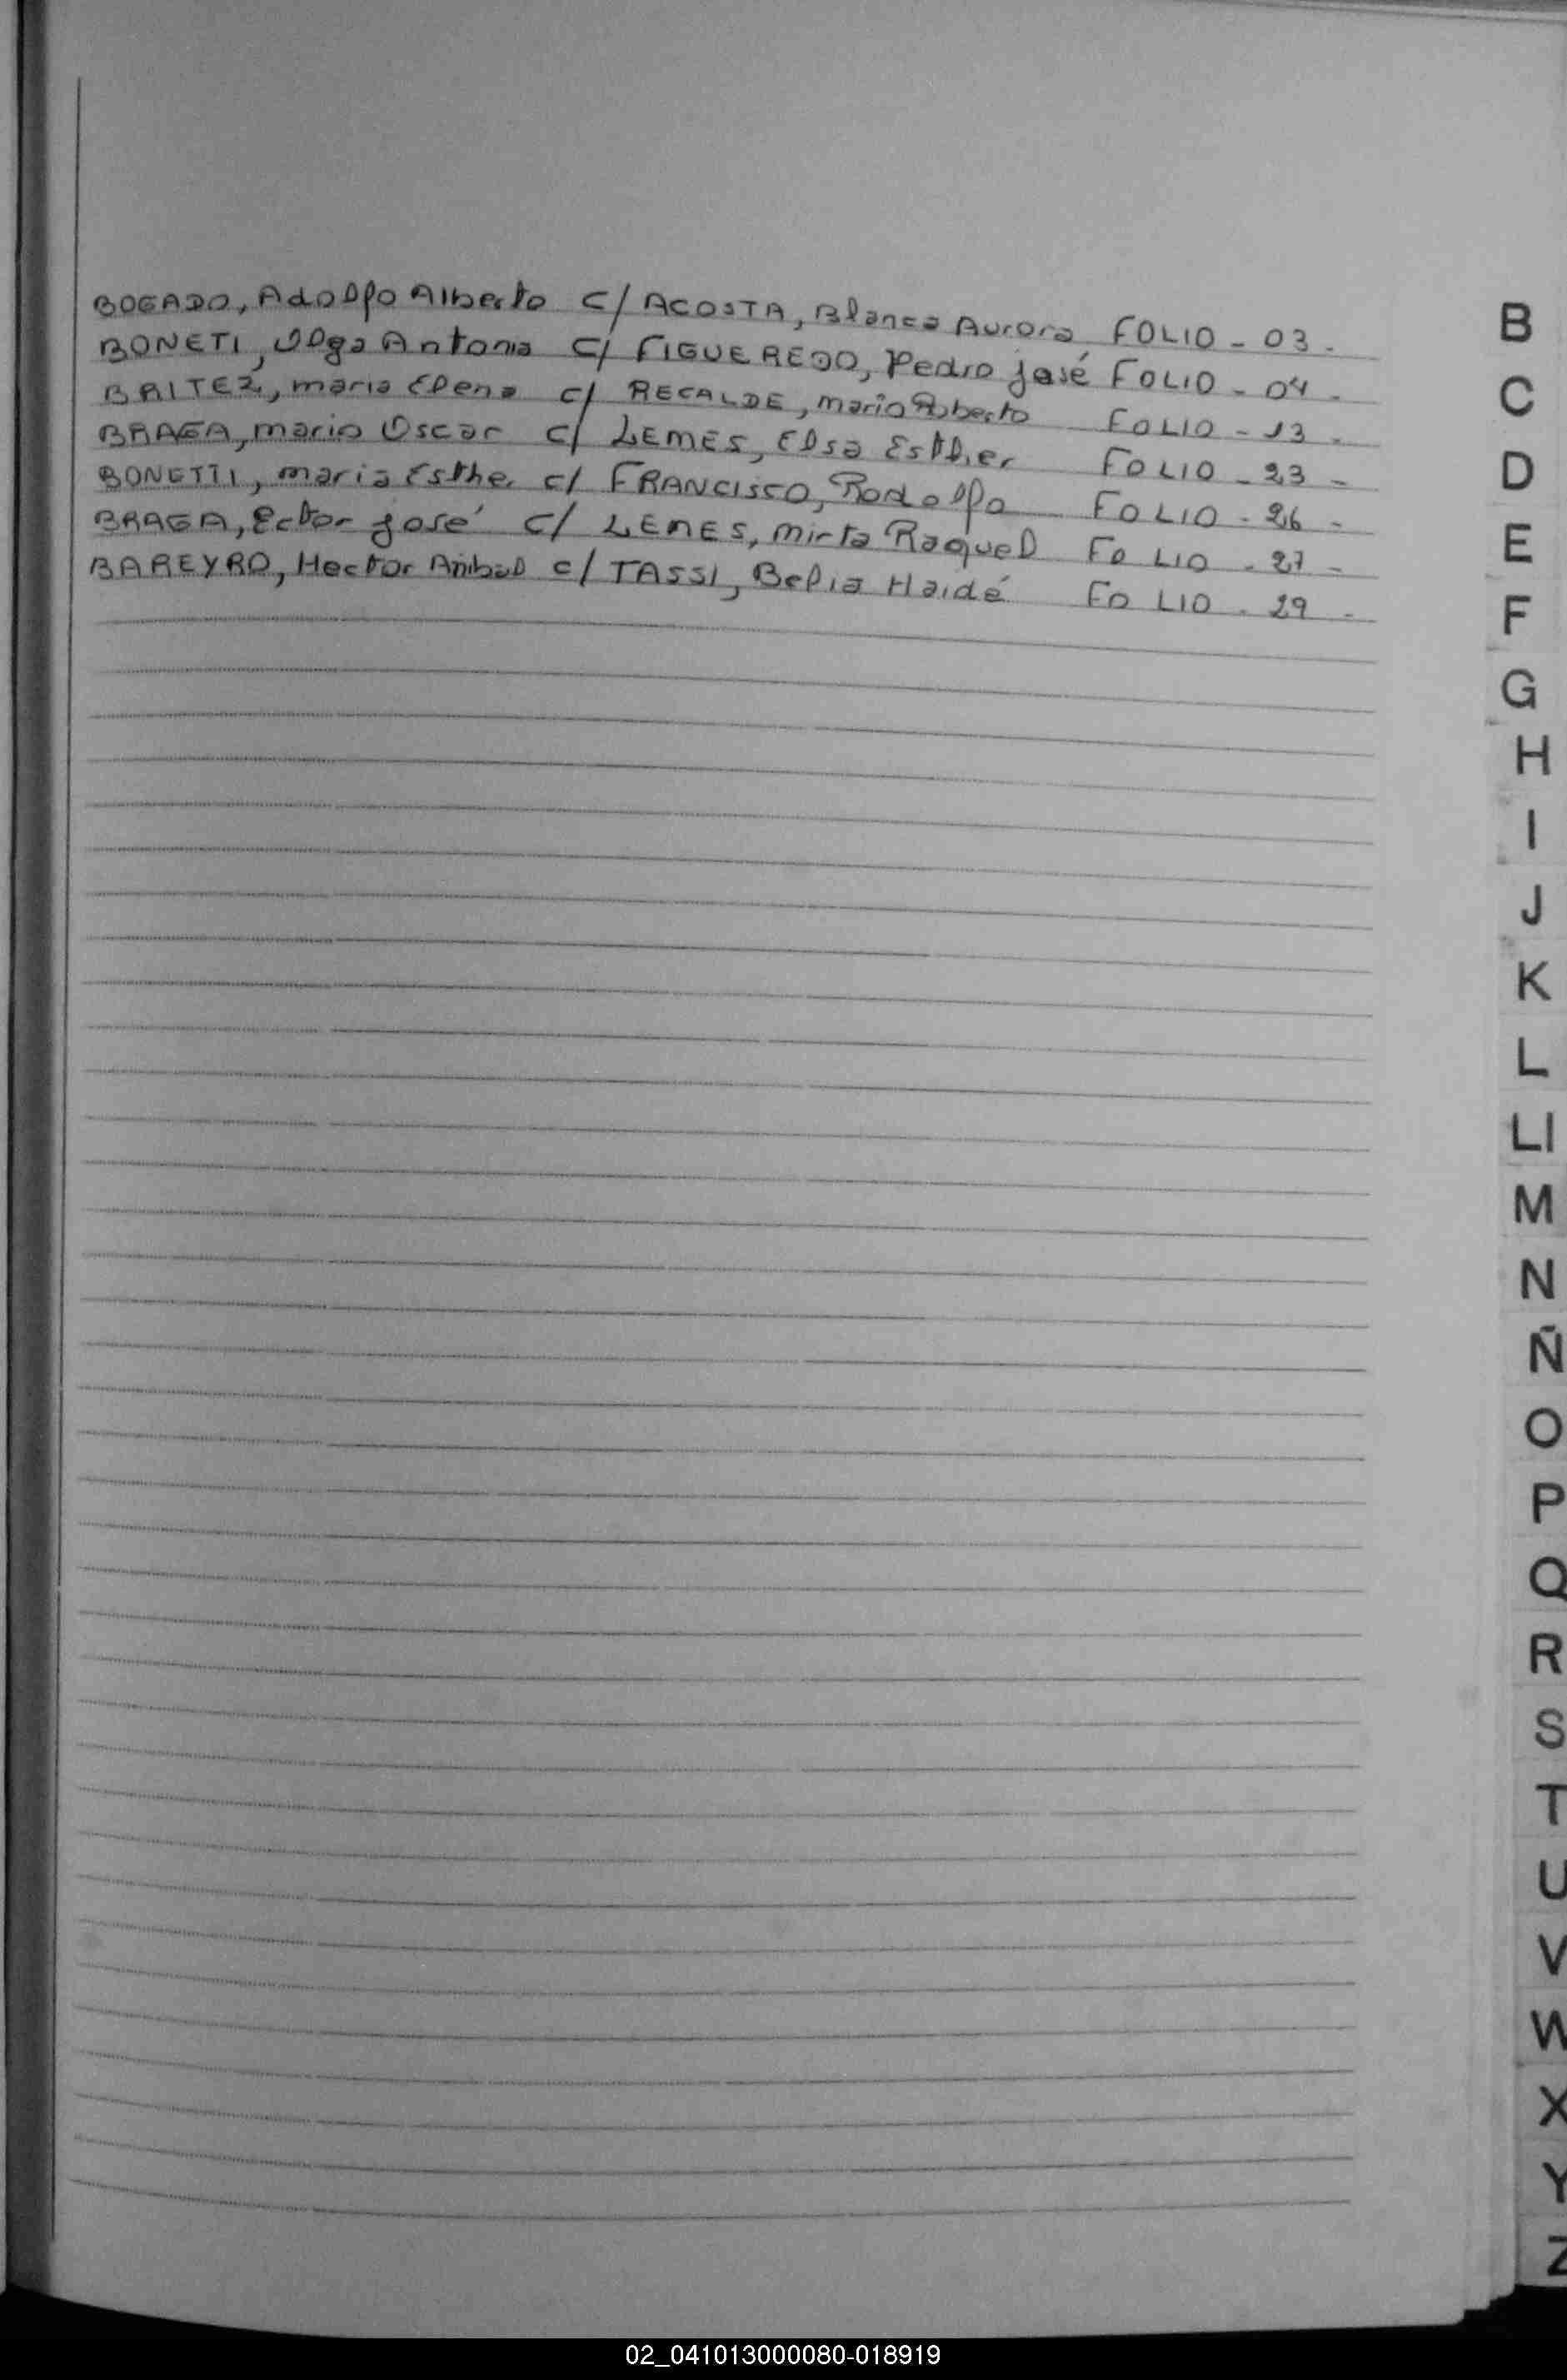 BOGADO, Adolfo Alberto c/ ACOSTA, Blanca Aurora FOLIO - 03 -
BONETI, Olga Antonia c/ FIGUEREDO, Pedro José FOLIO - 04 -
BRITEZ, maria Elena c/ RECALDE, mario Roberto FOLIO - 13 -
BRAGA, mario Oscar c/ LEMES, Elsa Esther FOLIO - 23 -
BONETTI, maria Esther c/ FRANCISCO, Rodolfo FOLIO - 26 -
BRAGA, Ector José c/ LEMES, Mirta Raquel FOLIO - 27 -
BAREYRO, Hector Anibal c/ TASSI, Belia Haidé FOLIO - 29 -
B
C
D
E
F
G
H
I
J
K
L
Ll
M
N
Ñ
O
P
Q
R
S
T
U
V
W
X
Y
Z
02_041013000080-018919